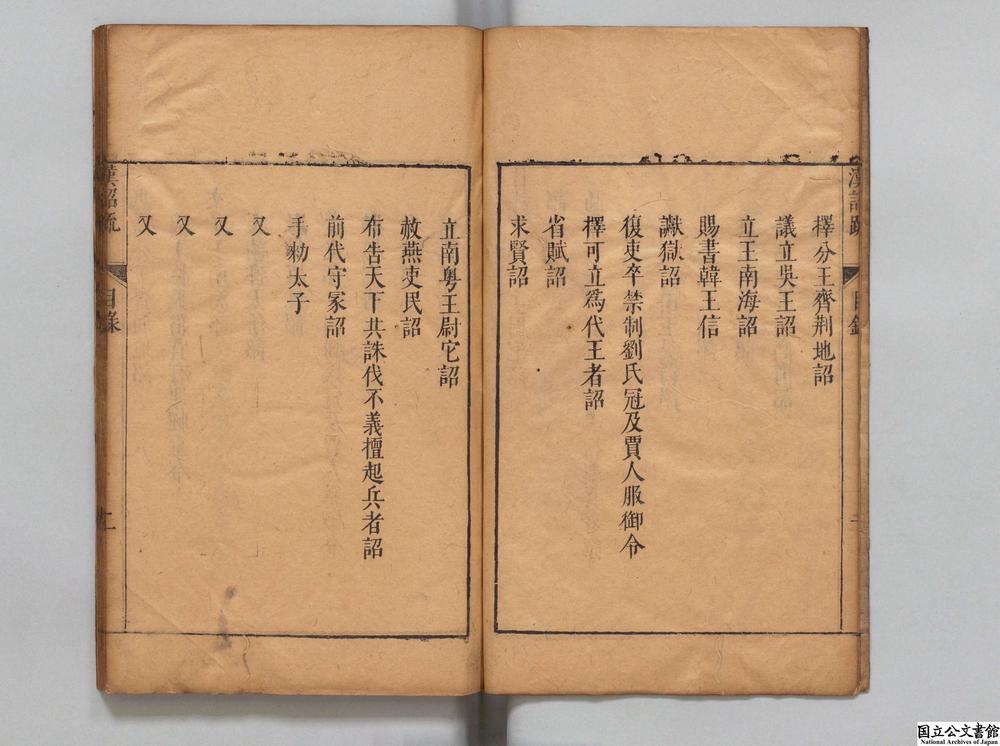 漢詔疏
目錄
一
擇分王齊荆地詔
議立吳王詔
立王南海詔
賜書韓王信
讞獄詔
復吏卒禁制劉氏冠及賈人服御令
擇可立爲代王者詔
省賦詔
求賢詔
立南粤王尉它詔
赦燕吏民詔
布告天下共誅伐不義擅起兵者詔
前代守冢詔
手勑太子
又
又
又
又
漢詔疏
目錄
二
国立公文書館
National Archives of Japan